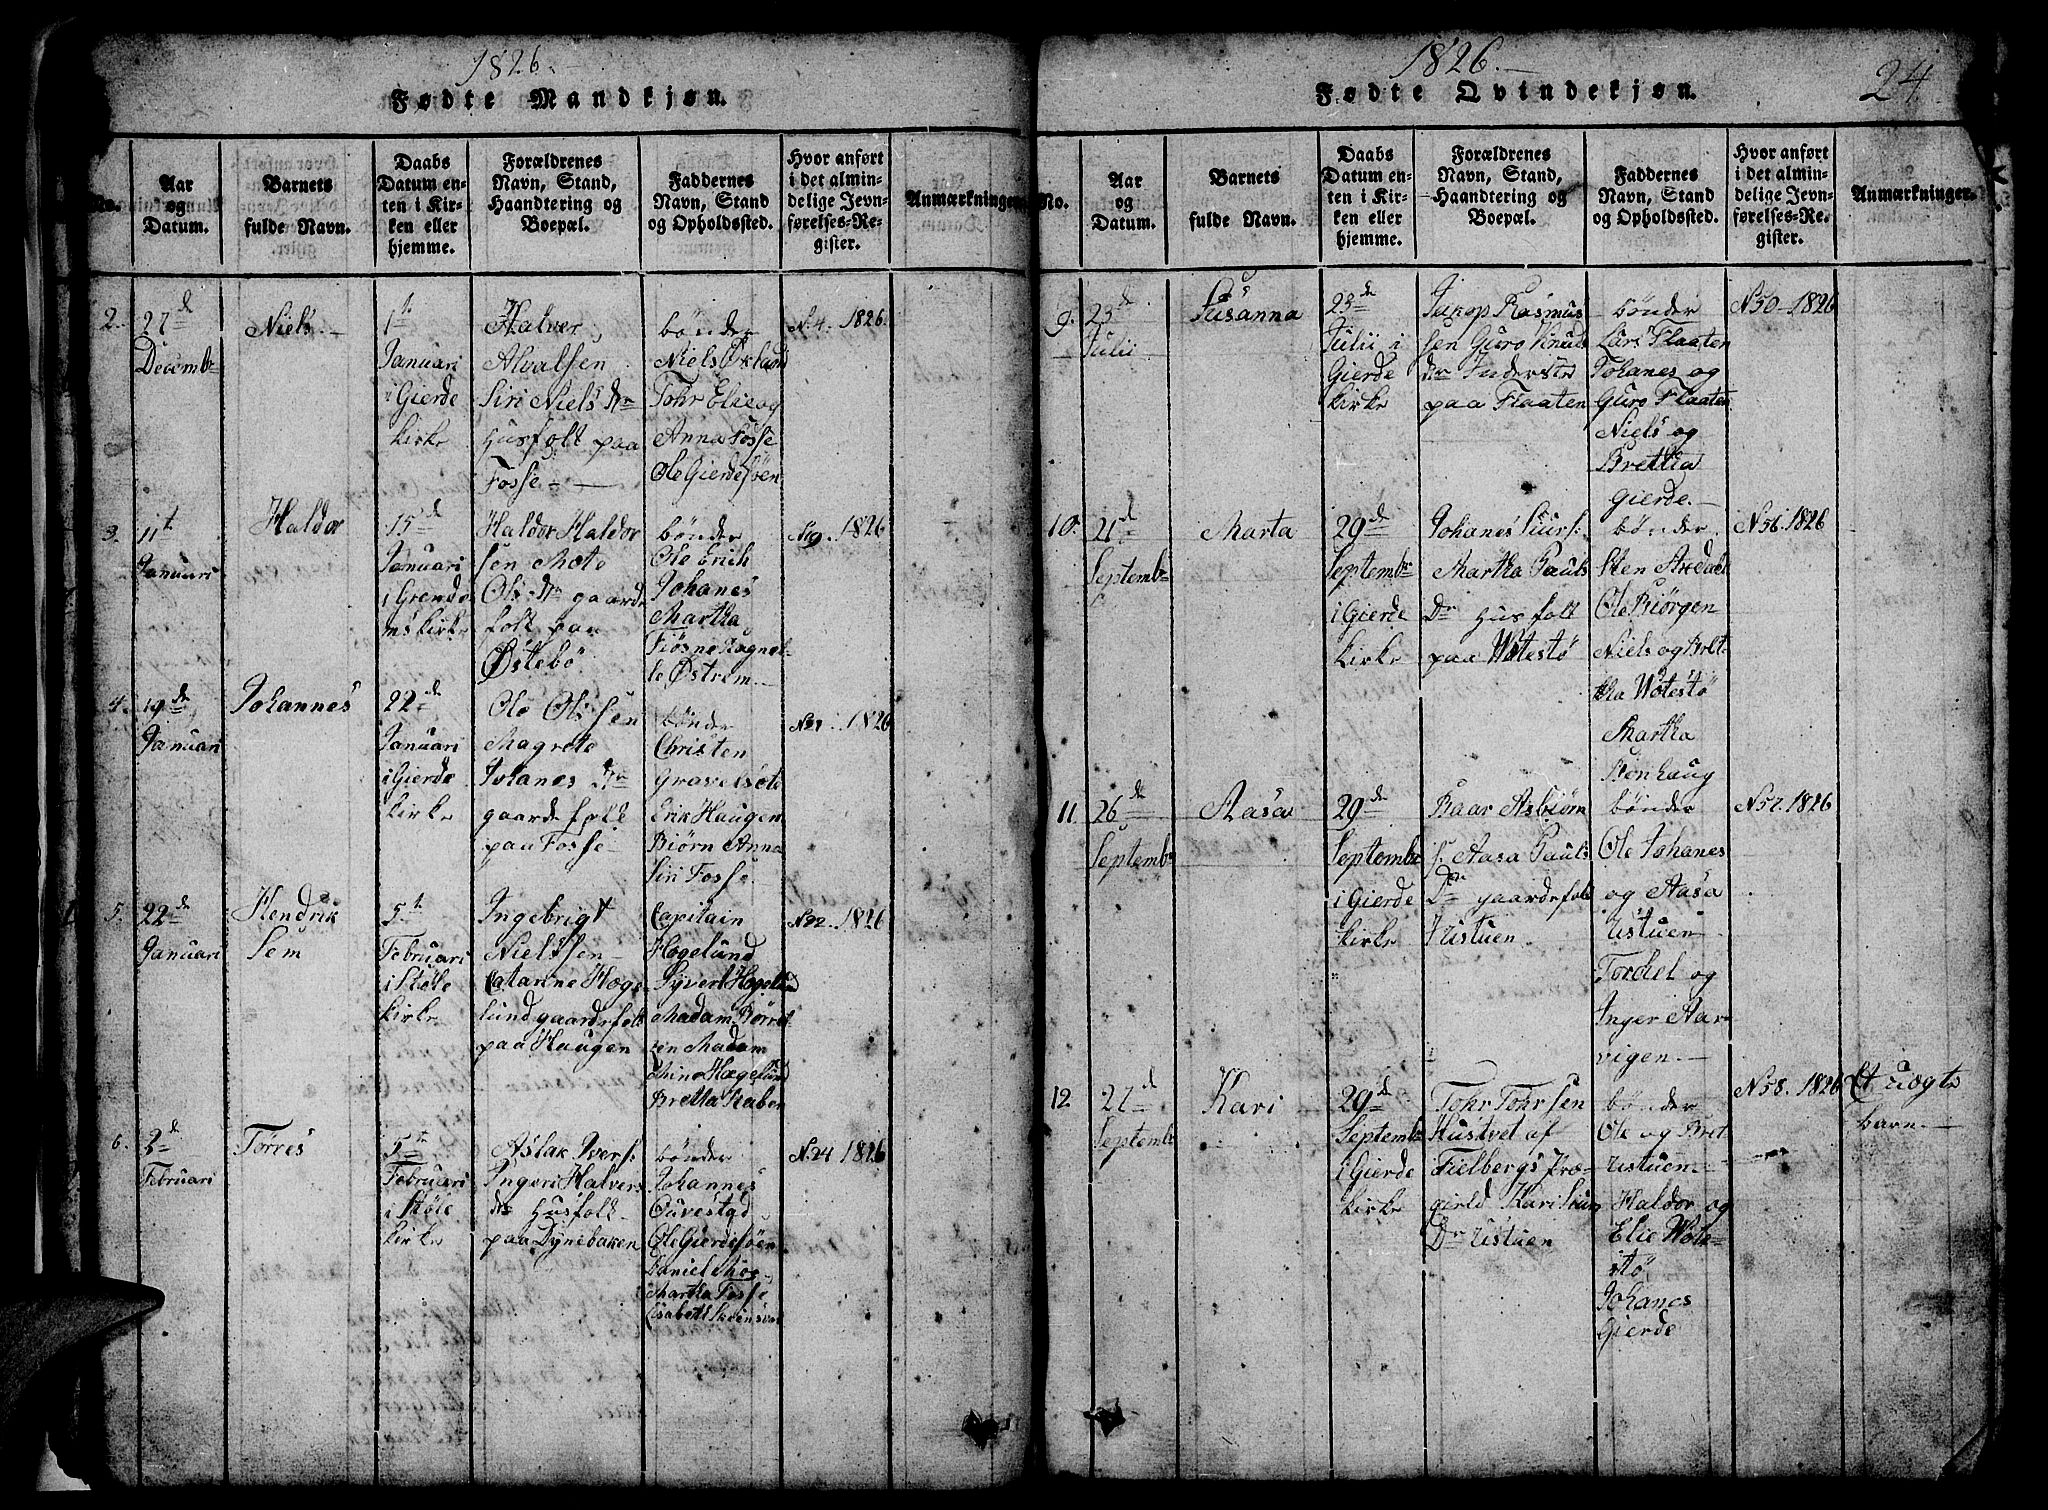 1826.
Fødte Mandkjøn.
No.
Aar
og
Datum.
Barnets
fulde Navn.
Daabs
Datum en-
ten i Kir-
ken eller
hjemme.
Forældrenes
Navn, Stand,
Haandtering og
Boepæl.
Faddernes
Navn, Stand
og Opholdssted.
Hvor anført
i det almin-
delige Jevn-
førelses-Re-
gister.
Anmærkninger
2.
27de
Decembr
Niels.
1t
Januari
i Gierde
kirke
Halver
Alvalsen
Siri Niels dr
Husfolk paa
Fosse
bønder
Niels Øxland
Tohr Elie og
Anna Fosse
Ole Gierdesøen
N. 4. 1826.
3.
11t
Januari
Haldor
15de
Januari
i Grendo
ms kirke
Haldor Haldor
sen Mote
Ols dr gaarde
folk paa
Østebö
bønder
Ole Erich
Johanes
Martha
Fiøsne Ragne
le Østrem
N9. 1826
4.
19de
Januari
Johannes
22de
Januari
i Gierde
kirke
Ole Olssen
Magrete
Johanes dr
gaarde folk
paa Fosse
bønder
Christen
gravelsæte
Erik Haugen
Biørn Anna
Siri Fosse
N21. 1826
5.
22de
Januari
Hendrik
Sem
5t
Februari
i Støle
kirke
Ingebrigt
Nielssen
Catarine Høge
lund gaardefolk
paa Haugen
Capitain
Høgelund
Syvert Høgelund
Madam Børret
zen Madam
Stine Høgelund
Bretta Raben
N22. 1826
6.
3de
Februari
Tørres
5te
Februari
i Støle
kirke
Aslak Ivers:
Ingeri Halvers
dr Husfolk
paa Dynebaken
bønder
Johannes
Ouvestad
Ole Gierdesøen
Daniel Moe
Martha Fosse
Elsabeth Skoensvol
N. 24 1826
1826.
Fødte Qvindekjøn.
24.
No.
Aar
og
Datum.
Barnets
fulde Navn.
Daabs
Datum en-
ten i Kir-
ken eller
hjemme.
Forældrenes
Navn, Stand,
Haandtering og
Boepæl.
Faddernes
Navn, Stand
og Opholdssted.
Hvor anført
i det almin-
delige Jevn-
førelses-Re-
gister.
Anmærkninger.
9.
23de
Julii
Susanna
23de
Julii i
Gierde
kirke
Jakop Rasmus
sen Guro Knuds
dr Inderster
paa Flaaten
bønder
Lars Flaaten
Johanes og
Guro Flaaten
Niels og
Brettha
gierde.
N50 1826
10.
21de
Septembr
Marta
29de
Septembr
i Gierde
kirke
Johanes Siurs:
Martha Pauls
Dr Husfolk
paa Wotestø
bønder
Sten Axdal
Ole Biørgen
Niels og Bret
tha Wotestö
Martha
Stenhaug
N56. 1826
11.
26de
Septembr
Aasa
29de
Septembr
i Gierde
kirke
Baar Asbiørn
s: Aasa Pauls
Dr gaardefolk
Ustuen
bønder
Ole Johanes
og Aasa
Ustuen
Torchel og
Inger Aar
vigen.
N57. 1826
12.
27de
Septembr
Kari
29de
Septembr
i Gierde
kirke
Tohr Tohrsen
Hustvet af
Fielbergs Præ-
gield Kari Siurs
Dr Ustuen
bønder
Ole og Bret
Ustuen
Haldor og
Elie Wote-
stö
Johanes
Gierde
N58. 1826
Et uægte
barn.